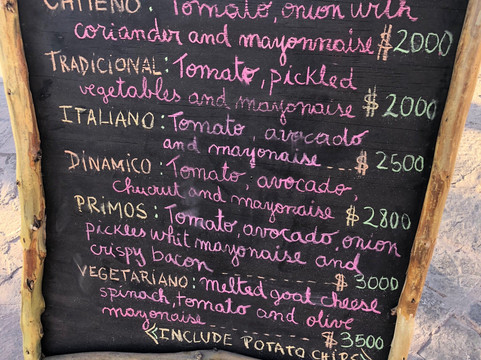 CHILENO: Tomato, onion with
coriander and mayonnaise $2000
TRADICIONAL: Tomato, pickled
vegetables and mayonaise $2000
ITALIANO: Tomato, avocado
and mayonaise $2500
DINAMICO: Tomato, avocado,
chucrut and mayonaise $2800
PRIMOS: Tomato, avocado, onion
pickles whit mayonaise and
crispy bacon $3000
VEGETARIANO: melted goat cheese
spinach, tomato and olive
mayonaise $3500
<INCLUDE POTATO CHIPS>